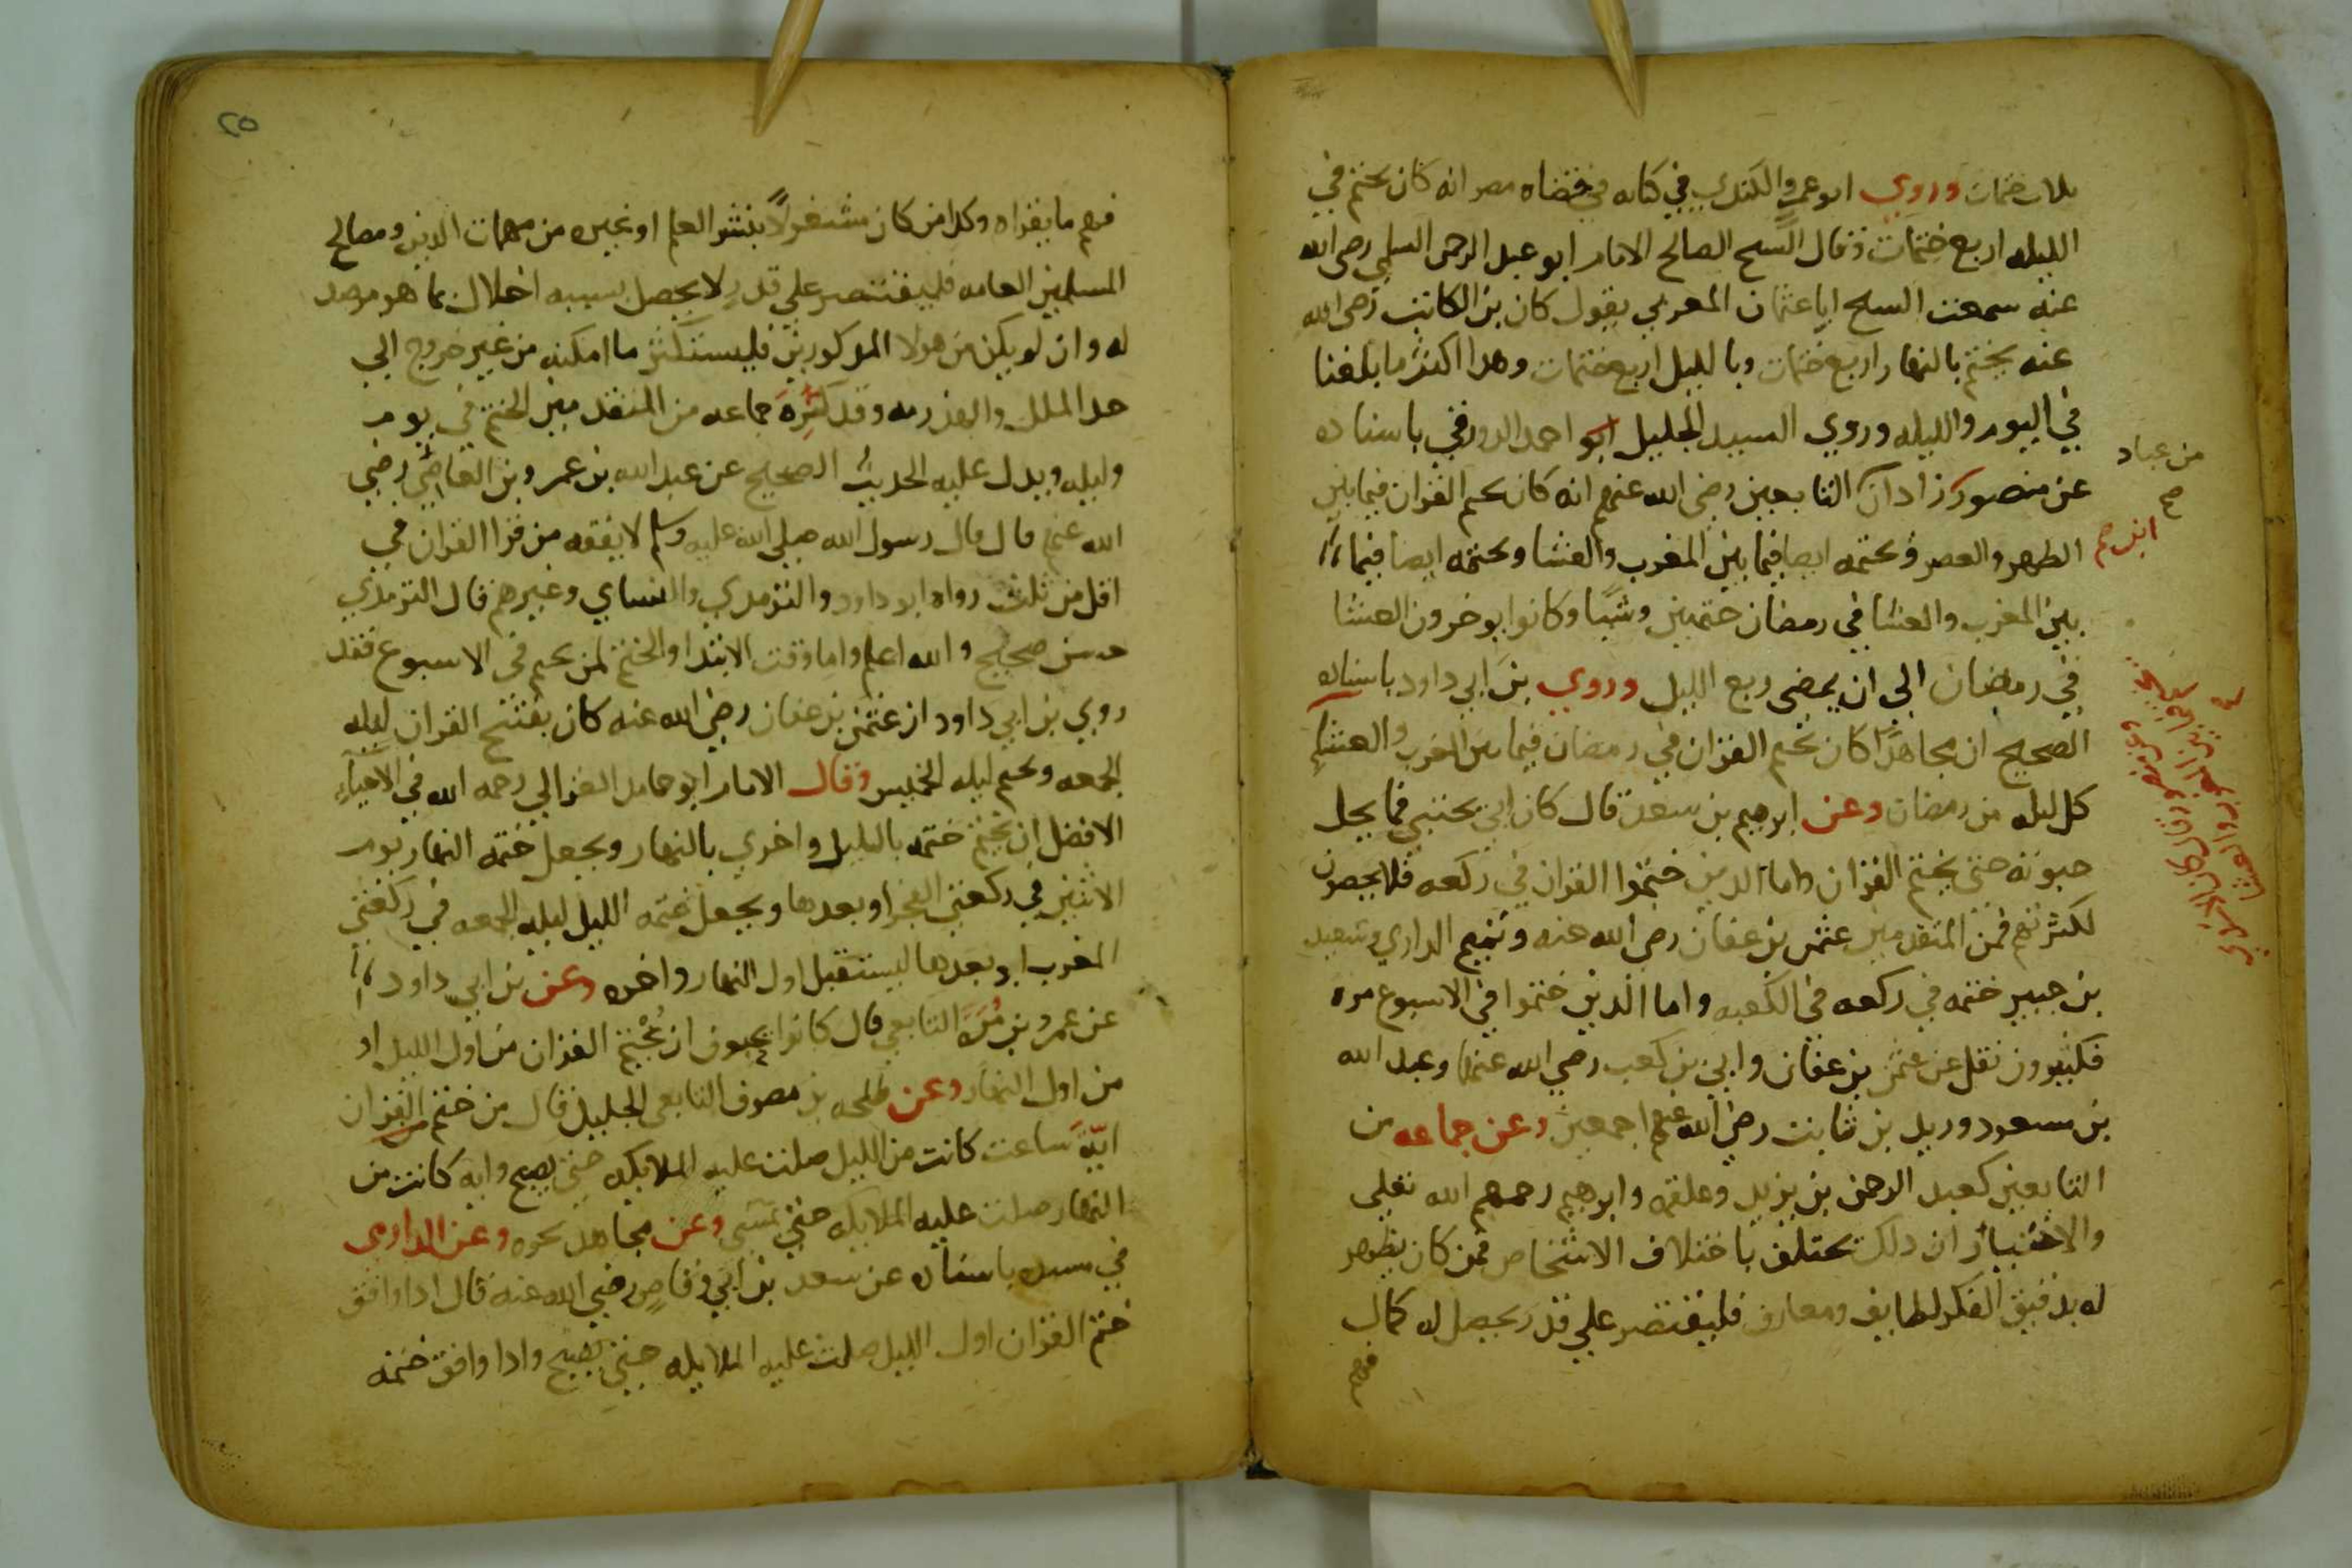 ثلاث ختمات وروي ابو عمر والكندي في كتابه في قضاه مصر انه كان يختم في
الليله اربع ختمات وقال الشيخ الصالح الامام ابو عبد الرحمن السلمي رضي الله
عنه سمعت الشيخ ابا عثمان المغربي يقول كان بن الكاتب رضي الله
عنه يختم بالنهار اربع ختمات وبالليل اربع ختمات وهذا اكثر ما بلغنا
في اليوم والليله وروي السيد الجليل ابو احمد الدورقي باسناده
عن منصور زادان التابعين رضي الله عنهم انه كان يختم القران فيما بين
من عباد
صح
ابن صح
الظهر والعصر ويختمه ايضا فيما بين المغرب والعشا ويختمه ايضا فيما
بين المغرب والعشا في رمضان ختمتين وشيا وكانوا يوخرون العشا
في رمضان الي ان يمضي ربع الليل وروي بن ابي داود باسناده
الصحيح ان مجاهدا كان يختم القران في رمضان فيما بين المغرب والعشا
كل ليله من رمضان وعن ابرهيم بن سعد قال كان ابي يحتبي فما يحل
حبوته حتى يختم القران واما الذين ختموا القران في ركعه فلا يحصون
لكثرتهم فمن المتقدمين عثمن بن عفان رضي الله عنه وتميم الداري وسعيد
بن جبير ختمه في ركعه في الكعبه واما الذين ختموا في الاسبوع مره
فكثيرون نقل عن عثمن بن عفان وابي بن كعب رضي الله عنهما وعبد الله
بن مسعود وزيد بن ثابت رضي الله عنهم اجمعين وعن جماعه من
التابعين كعبد الرحمن بن يزيد وعلقمه وابرهيم رحمهم الله تعلي
والاختيار ان ذلك يختلف باختلاف الاشخاص فمن كان يظهر
له بدقيق الفكر لطايف ومعارف فليقتصر علي قدر يحصل له كمال
فهم
٢٥
فهم ما يقراه وكذا من كان مشغولا بنشر العلم او غيره من مهمات الدين ومصالح
المسلمين العامه فليقتصر علي قدر لا يحصل بسببه اخلال بما هو مرصد
له وان لم يكن من هولا المذكورين فليستكثر ما امكنه من غير خروج الي
حد الملل والهذرمه وقد كره جماعه من المتقدمين الختم في يوم
وليله ويدل عليه الحديث الصحيح عن عبد الله بن عمر وبن العاصي رضي
الله عنهم قال قال رسول الله صلي الله عليه وسلم لا يفقه من قرا القران في
اقل من ثلث رواه ابو داود والترمدي والنساي وغيرهم قال الترمدي
حسن صحيح والله اعلم واما وقت الابتدا والختم لمن يختم في الاسبوع فقد
روي بن ابي داود ان عثمن بن عفان رضي الله عنه كان يفتتح القران ليله
الجمعه ويختم ليله الخميس وقال الامام ابو حامد الغزالي رحمه الله في الاحياء
الافضل ان يختم ختمه بالليل واخري بالنهار ويجعل ختمه النهار يوم
الاثنين في ركعتي الفجر او بعدها ويجعل ختمه الليل ليله الجمعه في ركعتي
المغرب او بعدها ليستقبل اول النهار واخره وعن بن ابي داود
عن عمرو بن مره التابعي قال كانوا يحبون ان يختم القران من اول الليل او
من اول النهار وعن طلحه بن مصرف التابعي الجليل قال من ختم القران
ايه ساعت كانت من الليل صلت عليه الملايكه حتي يصبح وايه كانت من
النهار صلت عليه الملايكه حتي يمسي وعن مجاهد نحوه وعن الدارمي
في مسنده باسناده عن سعد بن ابي وقاص رضي الله عنه قال اذا وافق
ختم القران اول الليل صلت عليه الملايكه حتي يصبح واذا وافق ختمه